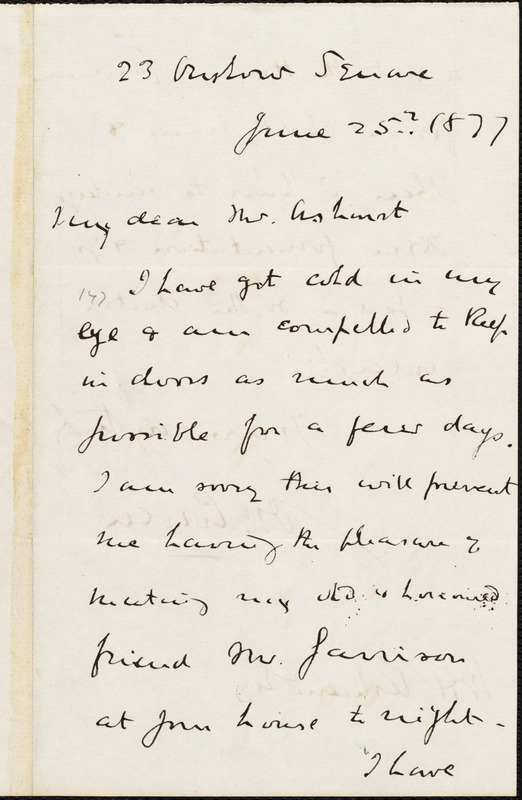 23 Onslow Square
June 25th. 1877
My dear Mr. Ashurst
I have got cold in my
eye & am compelled to keep
in doors as much as
possible for a few days.
I am sorry this will prevent
me having the pleasure of
meeting my old & honoured
friend Mr. Garrison
at your house to night -
I have